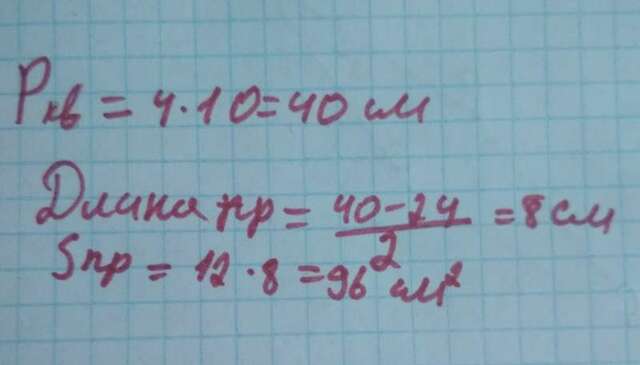 Pкв = 4·10=40 см
Длина пр = 40-24/2 = 8 см
Sпр = 12·8=96 см²